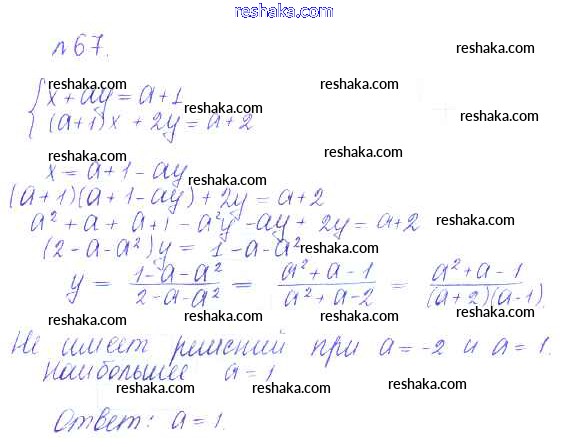 reshaka.com
№67.
reshaka.com
reshaka.com reshaka.com
x+ay=a+1
(a+1)x+2y=a+2
reshaka.com reshaka.com
reshaka.com reshaka.com
x=a+1-ay
(a+1)(a+1-ay)+2y=a+2
reshaka.com
a²+a+a+1-a²y-ay+2y=a+2
reshaka.com
(2-a-a²)y=1-a-a²
reshaka.com reshaka.com
y = (1-a-a²)/(2-a-a²) = (a²+a-1)/(a²+a-2) = (a²+a-1)/((a+2)(a-1))
reshaka.com reshaka.com
reshaka.com
Не имеет решений при a=-2 и a=1.
reshaka.com
Наибольшее a=1
reshaka.com reshaka.com
reshaka.com
Ответ: a=1.
reshaka.com reshaka.com